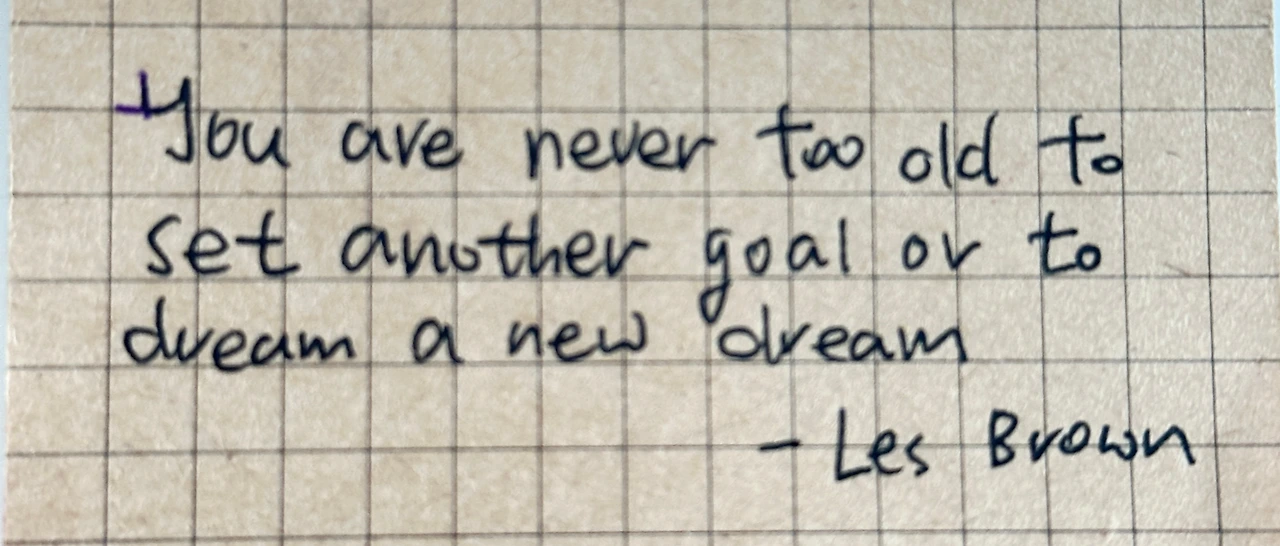 You are never too old to
set another goal or to
dream a new dream
- Les Brown